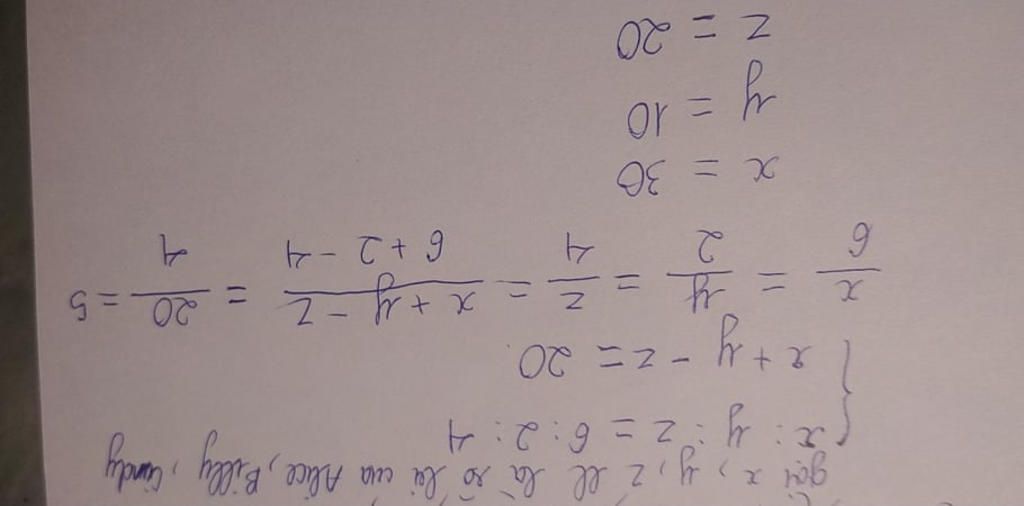 gọi x, y, z ll là số bi của Alice, Billy, Cindy
x : y : z = 6 : 2 : 4
x + y - z = 20
x/6 = y/2 = z/4 = (x + y - z)/(6 + 2 - 4) = 20/4 = 5
x = 30
y = 10
z = 20